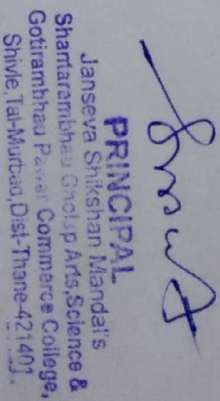 PRINCIPAL
Janseva Shikshan Mandal's
Shantarambhau Gholap Arts,Science &
Gotirambhau Pawar Commerce College,
Shivle,Tal-Murbad,Dist-Thane-421401.